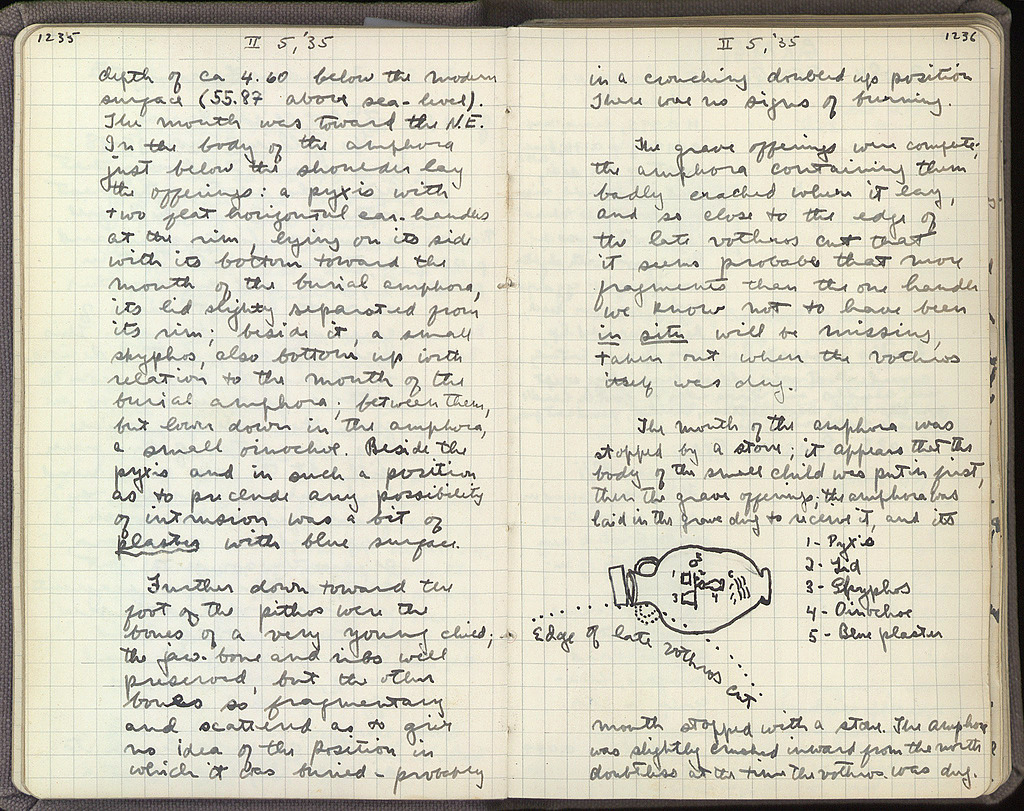 1235
II 5,'35
depth of ca 4.60 below the modern
surface (55.87 above sea-level).
The mouth was toward the N.E.
In the body of the amphora
just below the shoulder lay
the offerings: a pyxis with
two flat horizontal ear-handles
at the rim, lying on its side
with its bottom toward the
mouth of the burial amphora,
its lid slightly separated from
its rim; beside it, a small
skyphos, also bottom up with
relation to the mouth of the
burial amphora; between them,
but lower down in the amphora,
a small oinochoe. Beside the
pyxis and in such a position
as to preclude any possibility
of intrusion was a bit of
plaster with blue surface.
Further down toward the
foot of the pithos were the
bones of a very young child;
the jaw-bone and ribs well
preserved, but the other
bones so fragmentary
and scattered as to give
no idea of the position in
which it was buried - probably
1236
II 5,'35
in a crouching doubled up position
There were no signs of burning.
The grave offerings were complete;
the amphora containing them
badly cracked where it lay,
and so close to the edge of
the late bothros cut that
it seems probable that more
fragments than the one handle
we know not to have been
in situ will be missing,
taken out when the bothros
itself was dug.
The mouth of the amphora was
stopped by a stone; it appears that the
body of the small child was put in first,
then the grave offerings; the amphora was
laid in the grave dug to receive it, and its
1 - Pyxis
2 - Lid
3 - Skyphos
4 - Oinochoe
5 - Blue plaster
1
2
3
4
5
Edge of late bothros cut
mouth stopped with a stone. The amphora
was slightly crushed inward from the north
doubtless at the time the bothros was dug.